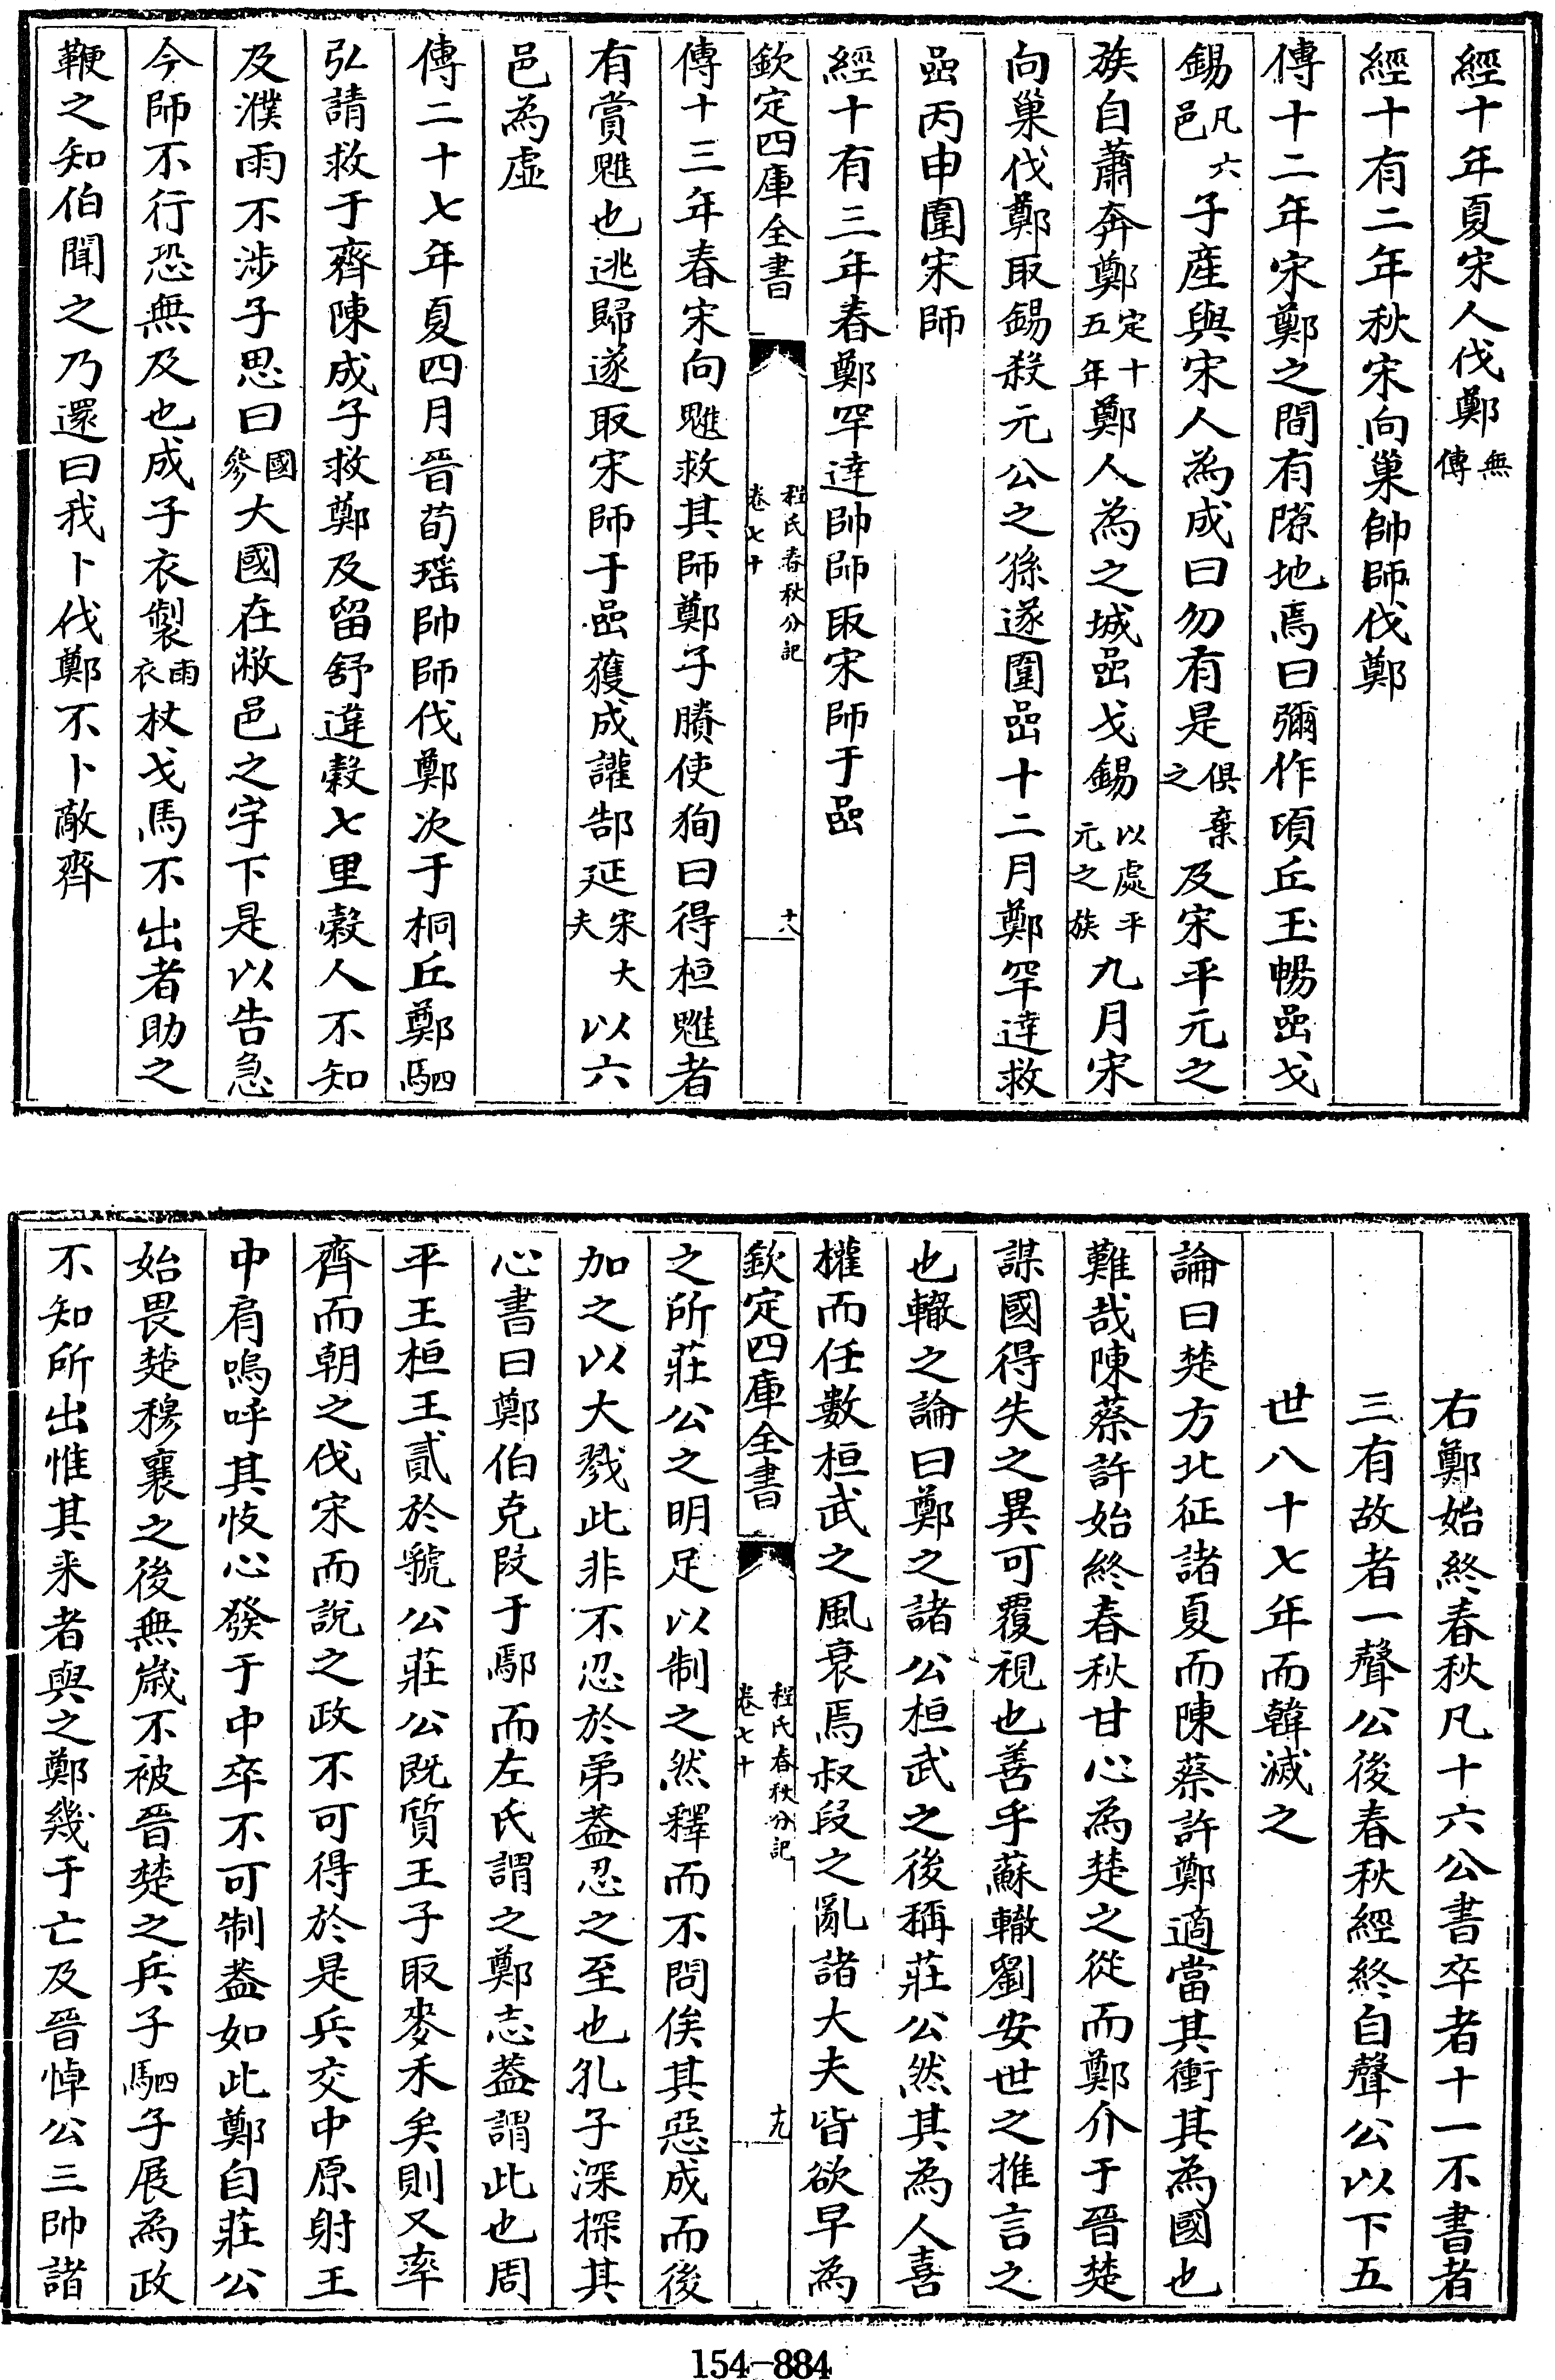 經十年夏宋人伐鄭無傳
經十有二年秋宋向巢帥師伐鄭
傳十二年宋鄭之間有隙地焉曰彌作頃丘玉暢嵒戈
錫凡六邑子産與宋人為成曰勿有是俱棄之及宋平元之
族自蕭奔鄭定十五年鄭人為之城嵒戈錫以處平元之族九月宋
向巢伐鄭取錫殺元公之孫遂圍嵒十二月鄭罕達救
嵒丙申圍宋師
經十有三年春鄭罕達帥師取宋師于嵒
欽定四庫全書
程氏春秋分記
卷七十
十八
傳十三年春宋向魋救其師鄭子賸使狥曰得桓魋者
有賞魋也逃歸遂取宋師于嵒獲成讙郜延宋大夫以六
邑為虛
傳二十七年夏四月晉荀瑶帥師伐鄭次于桐丘鄭駟
弘請救于齊陳成子救鄭及留舒違穀七里穀人不知
及濮雨不涉子思曰國參大國在敝邑之宇下是以告急
今師不行恐無及也成子衣製雨衣杖戈馬不出者助之
鞭之知伯聞之乃還曰我卜伐鄭不卜敵齊
右鄭始終春秋凡十六公書卒者十一不書者
三有故者一聲公後春秋經終自聲公以下五
世八十七年而韓滅之
論曰楚方北征諸夏而陳蔡許鄭適當其衝其為國也
難哉陳蔡許始終春秋甘心為楚之從而鄭介于晉楚
謀國得失之異可覆視也善乎蘇轍劉安世之推言之
也轍之論曰鄭之諸公桓武之後稱莊公然其為人喜
權而任數桓武之風衰焉叔段之亂諸大夫皆欲早為
欽定四庫全書
程氏春秋分記
卷七十
十九
之所莊公之明足以制之然釋而不問俟其惡成而後
加之以大戮此非不忍於弟葢忍之至也孔子深探其
心書曰鄭伯克段于鄢而左氏謂之鄭志葢謂此也周
平王桓王貳於虢公莊公既質王子取麥禾矣則又率
齊而朝之伐宋而說之政不可得於是兵交中原射王
中肩嗚呼其忮心發于中卒不可制葢如此鄭自莊公
始畏楚穆襄之後無嵗不被晉楚之兵子駟子展為政
不知所出惟其来者與之鄭幾于亡及晉悼公三帥諸
154-884